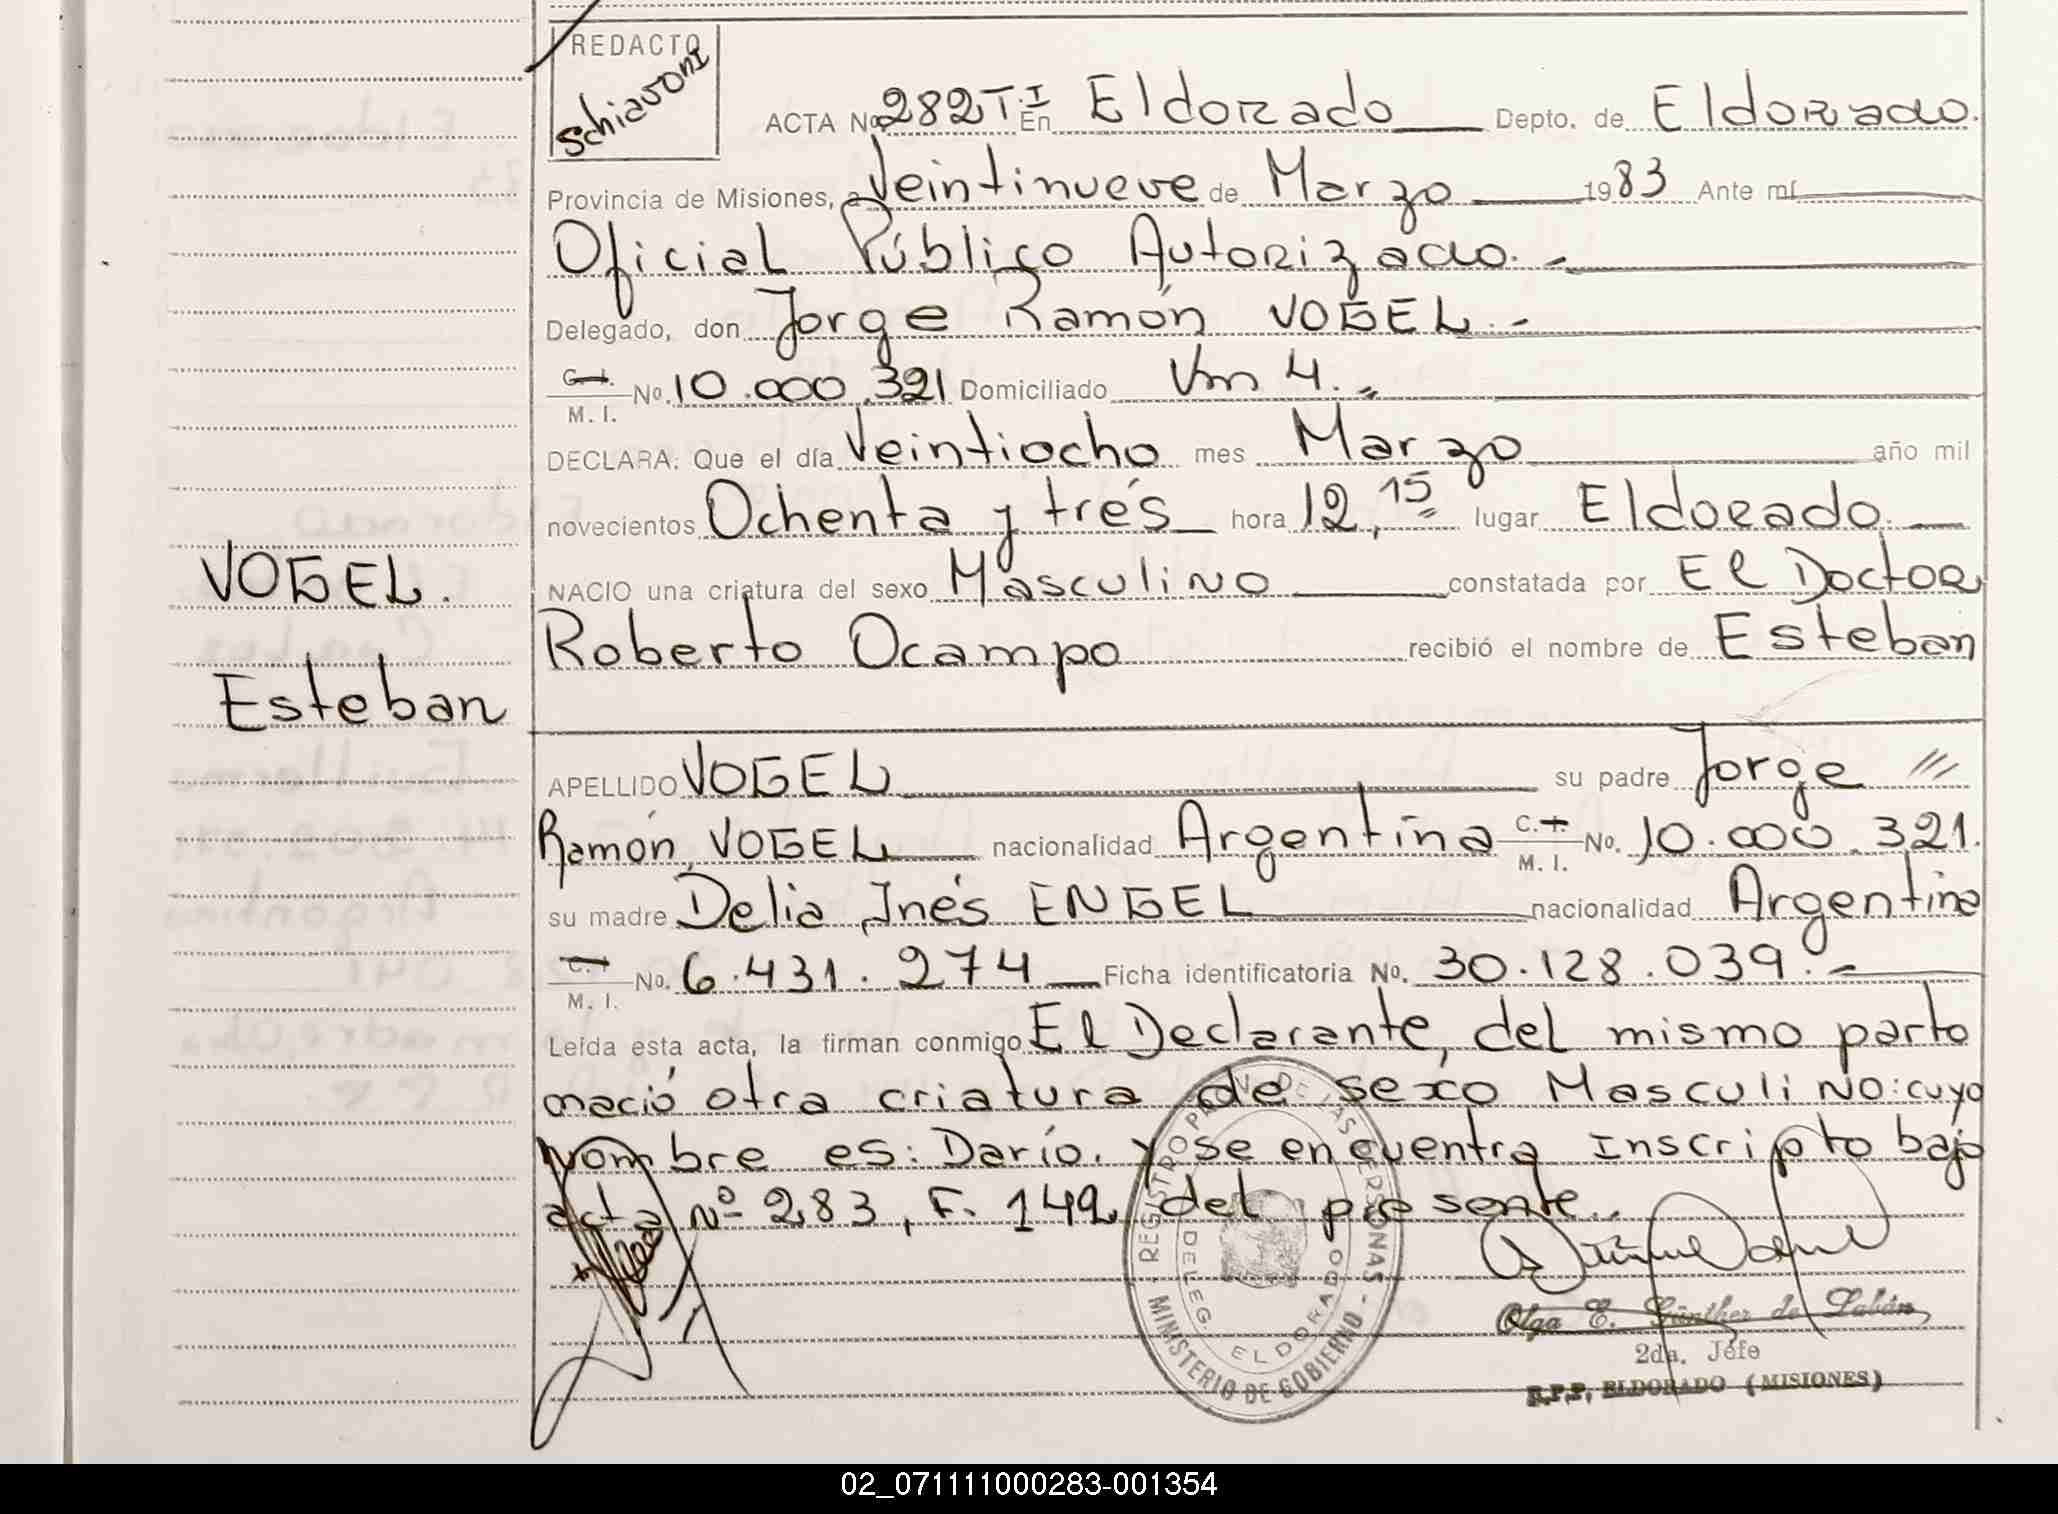 REDACTO
Schiavoni
ACTA No. 282 T: I En Eldorado Depto. de Eldorado.
Provincia de Misiones, a Veintinueve de Marzo 1983 Ante mí
Oficial Público Autorizado.-
Delegado, don Jorge Ramón VOGEL.-
C. I.
M. I.
No. 10.000.321 Domiciliado Km 4.
DECLARA: Que el día Veintiocho mes Marzo año mil
novecientos Ochenta y trés hora 12,15 lugar Eldorado.
NACIO una criatura del sexo Masculino constatada por El Doctor
Roberto Ocampo recibió el nombre de Esteban
VOGEL.
Esteban
APELLIDO VOGEL su padre Jorge
Ramón VOGEL nacionalidad Argentina C. I. M. I. No. 10.000.321.
su madre Delia Inés ENGEL nacionalidad Argentina
C. I.
M. I.
No. 6.431.274 Ficha identificatoria No. 30.128.039.-
Leída esta acta, la firman conmigo El Declarante, del mismo parto
nació otra criatura de sexo Masculino: cuyo
nombre es: Darío. y se encuentra Inscripto bajo
acta Nº 283, F. 142 del presente.
REGISTRO PROV. DE LAS PERSONAS
MINISTERIO DE GOBIERNO
DELEG. ELDORADO
Olga E. Günther de Labán
2da. Jefe
R.P.P. ELDORADO (MISIONES)
02_071111000283-001354